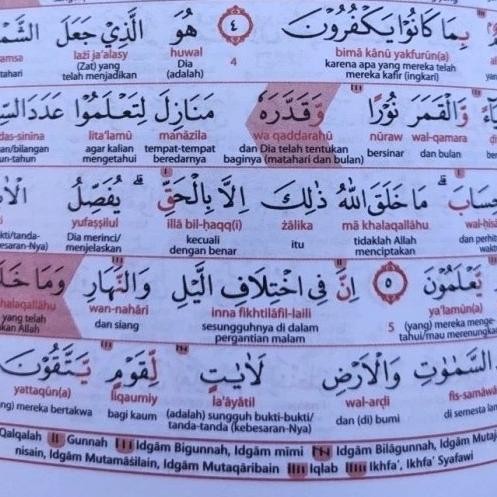 بِمَا كَانُوْا يَكْفُرُوْنَ ٤ هُوَ الَّذِيْ جَعَلَ الشَّمْ
bimā kānū yakfurūn(a) 4 huwal lażī ja'alasy amsa
karena apa yang mereka telah Dia (Zat) yang atahari
mereka kafir (ingkari) (adalah) telah menjadikan
وَّالْقَمَرَ نُوْرًا وَّقَدَّرَهٗ مَنَازِلَ لِتَعْلَمُوْا عَدَدَ السِّ
wal-qamara nūraw wa qaddarahū manāzila lita'lamū das-sinina
dan bulan bersinar dan Dia telah tentukan tempat-tempat agar kalian an/bilangan
baginya (matahari dan bulan) beredarnya mengetahui un-tahun
حِسَابَ ۗ مَا خَلَقَ اللّٰهُ ذٰلِكَ اِلَّا بِالْحَقِّ ۗ يُفَصِّلُ الْاٰ
wal-ḥis mā khalaqallāhu żālika illā bil-ḥaqq(i) yufaṣṣilul
dan perhit tidaklah Allah itu kecuali Dia merinci/ kti/tanda-
waktu menciptakan dengan benar menjelaskan esaran-Nya)
يَّعْلَمُوْنَ ٥ اِنَّ فِى اخْتِلَافِ الَّيْلِ وَالنَّهَارِ وَمَا خَلَ
ya'lamūn(a) 5 inna fikhtilāfil-laili wan-nahāri halaqallāhu
(yang) mereka menge- sesungguhnya di dalam dan siang yang telah
tahui/mau merenungkan pergantian malam kan Allah
السَّمٰوٰتِ وَالْاَرْضِ لَاٰيٰتٍ لِّقَوْمٍ يَّتَّقُوْنَ
fis-samāwā wal-arḍi la'āyātil liqaumiy yattaqūn(a)
di semesta la dan (di) bumi (adalah) sungguh bukti-bukti/ bagi kaum ng) mereka bertakwa
tanda-tanda (kebesaran-Nya)
Qalqalah Gunnah Idgām Bigunnah, Idgām mimi Idgām Bilāgunnah, Idgām Mutaj
nisain, Idgām Mutamāṡilain, Idgām Mutaqāribain Iqlab Ikhfa', Ikhfa' Syafawi